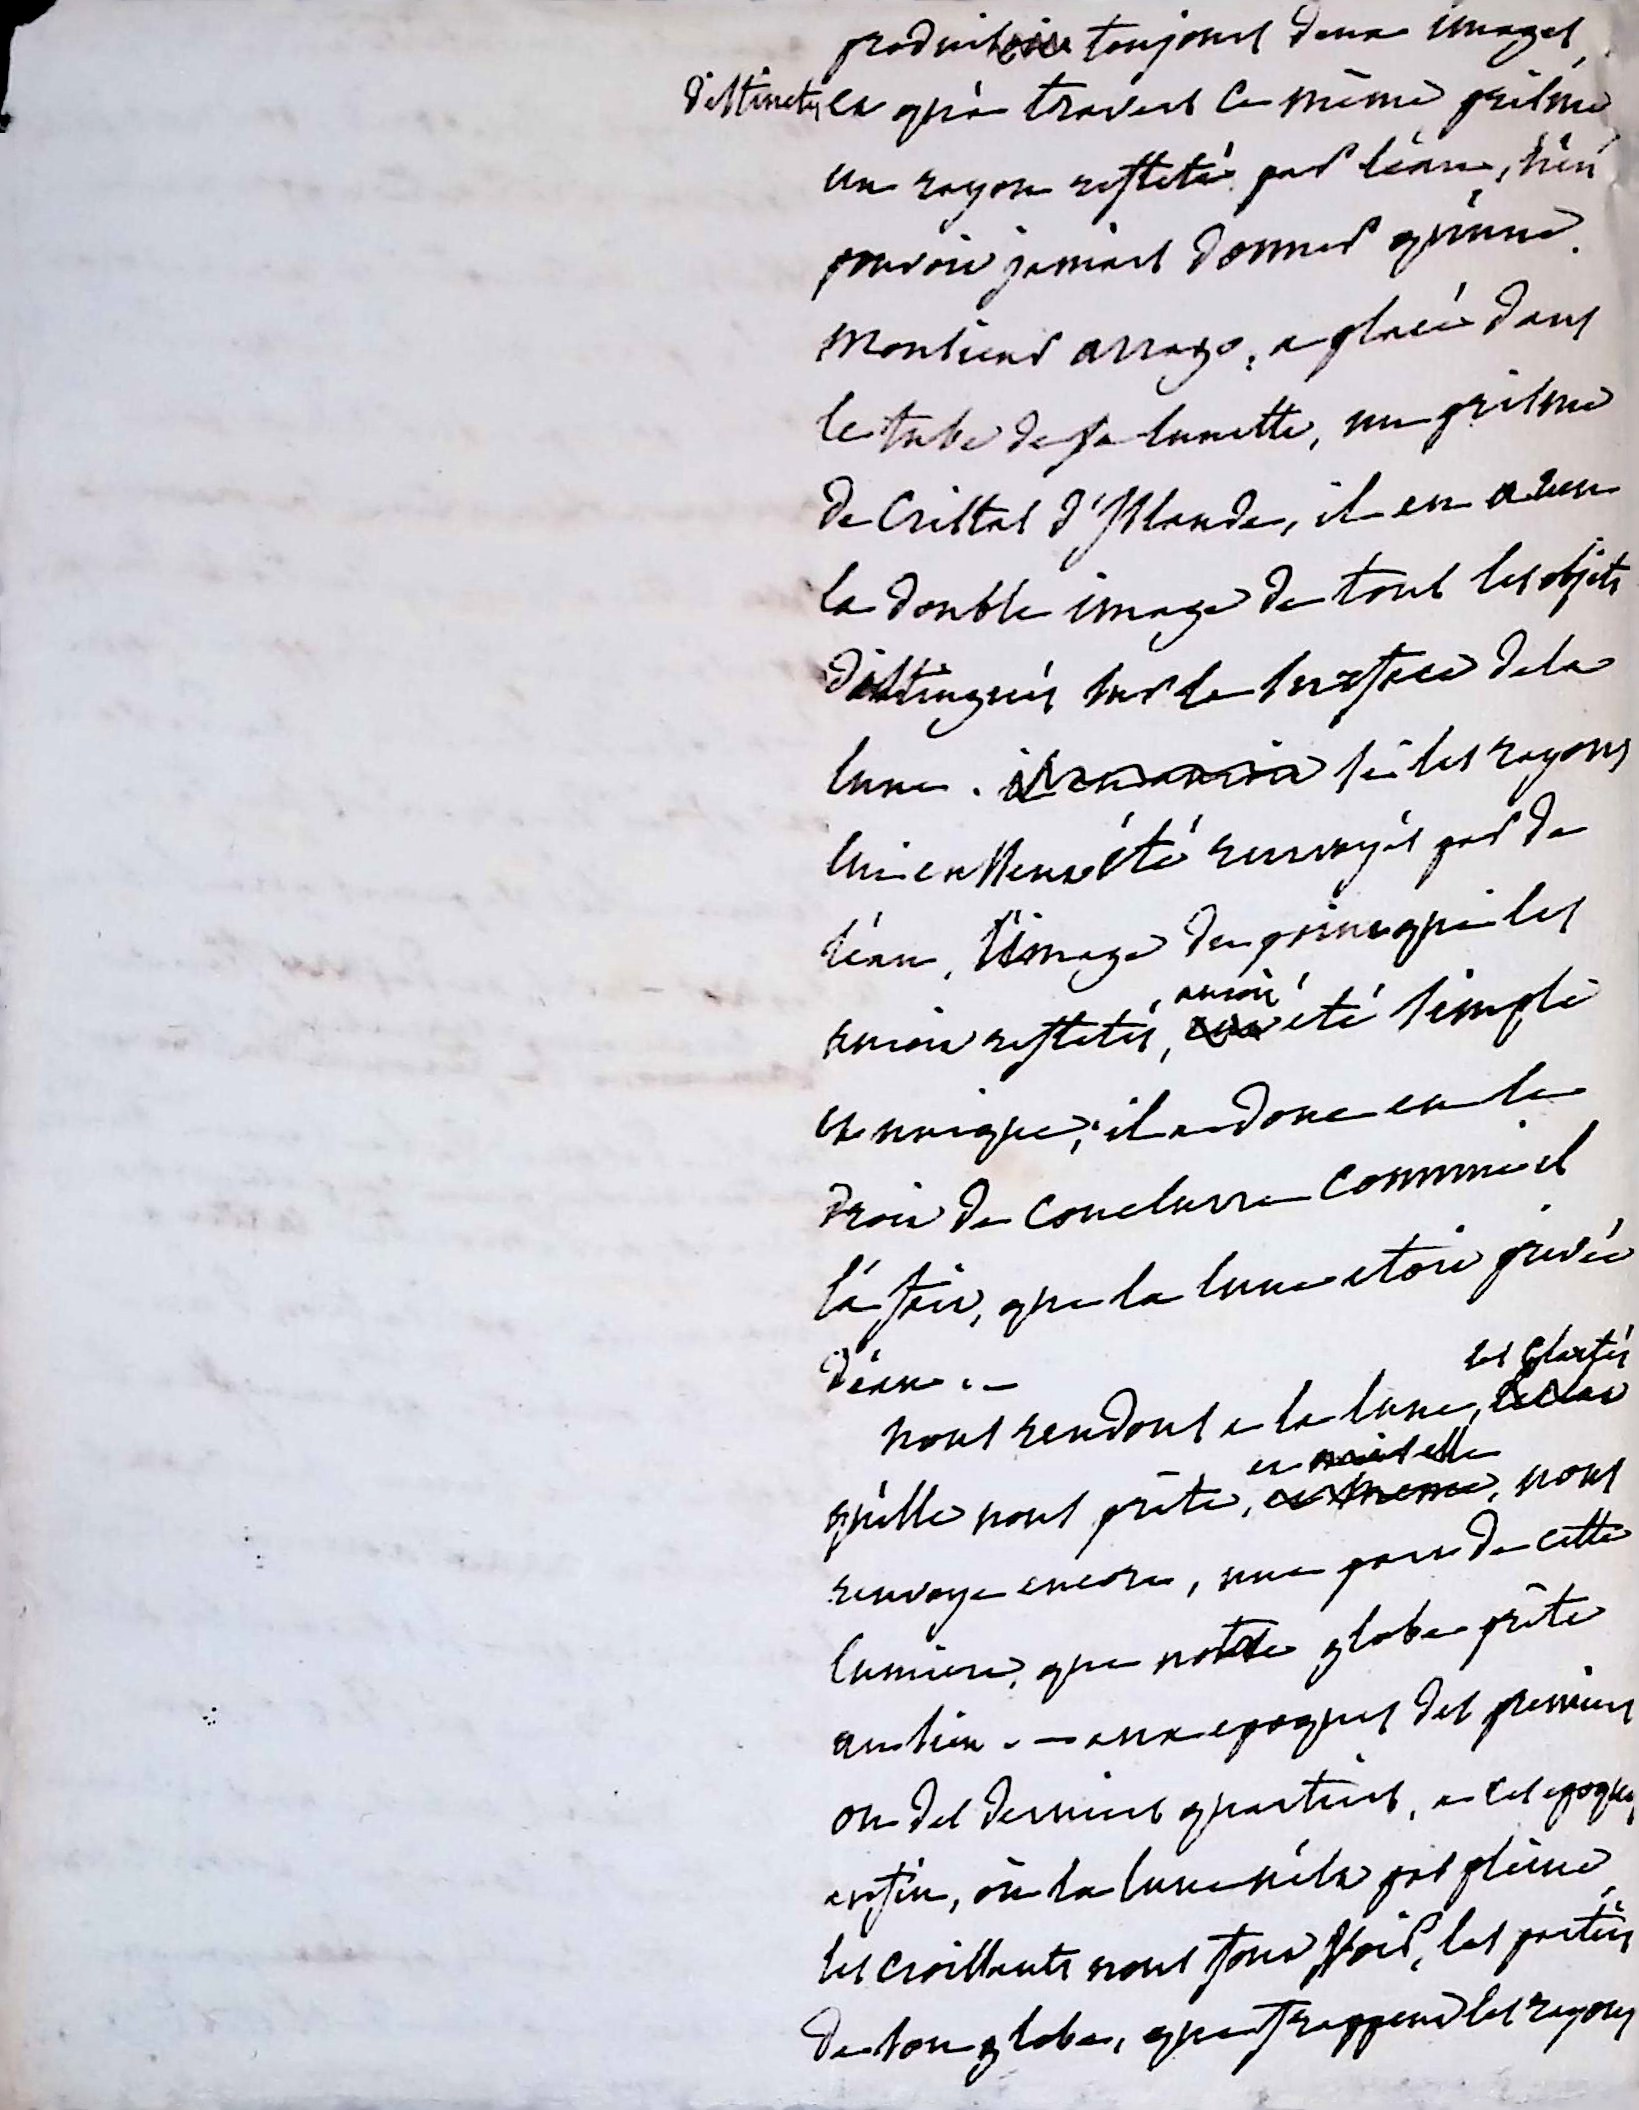 produisoit toujours deux images
distinctes, et qu'à travers ce même prisme
un rayon reflété par l'eau, n'en
pouvoit jamais donner qu'une.
Monsieur arrago, a placé dans
le tube de sa lunette, un prisme
de Cristal d'Islande, il en a vu
la double image de tous les objets
distingués sur la surface de la
lune. si les rayons
lui eussent été renvoyés par de
l'eau, l'image du point qui les
auroit reflétés, auroit été simple
et unique; il a donc eu le
droit de conclurre comme il
l'a fait, que la lune etoit privée
d'eau. —
nous rendons a la lune, les clartés
qu'elle nous prête, et elle nous
renvoye encore, une part de cette
lumiere, que notre globe prête
au sien. — aux epoques des premiers
ou des derniers quartiers, a ces epoques
enfin, où la lune n'est pas pleine,
les croissants nous font voir, les parties
de son globe, que frappent les rayons